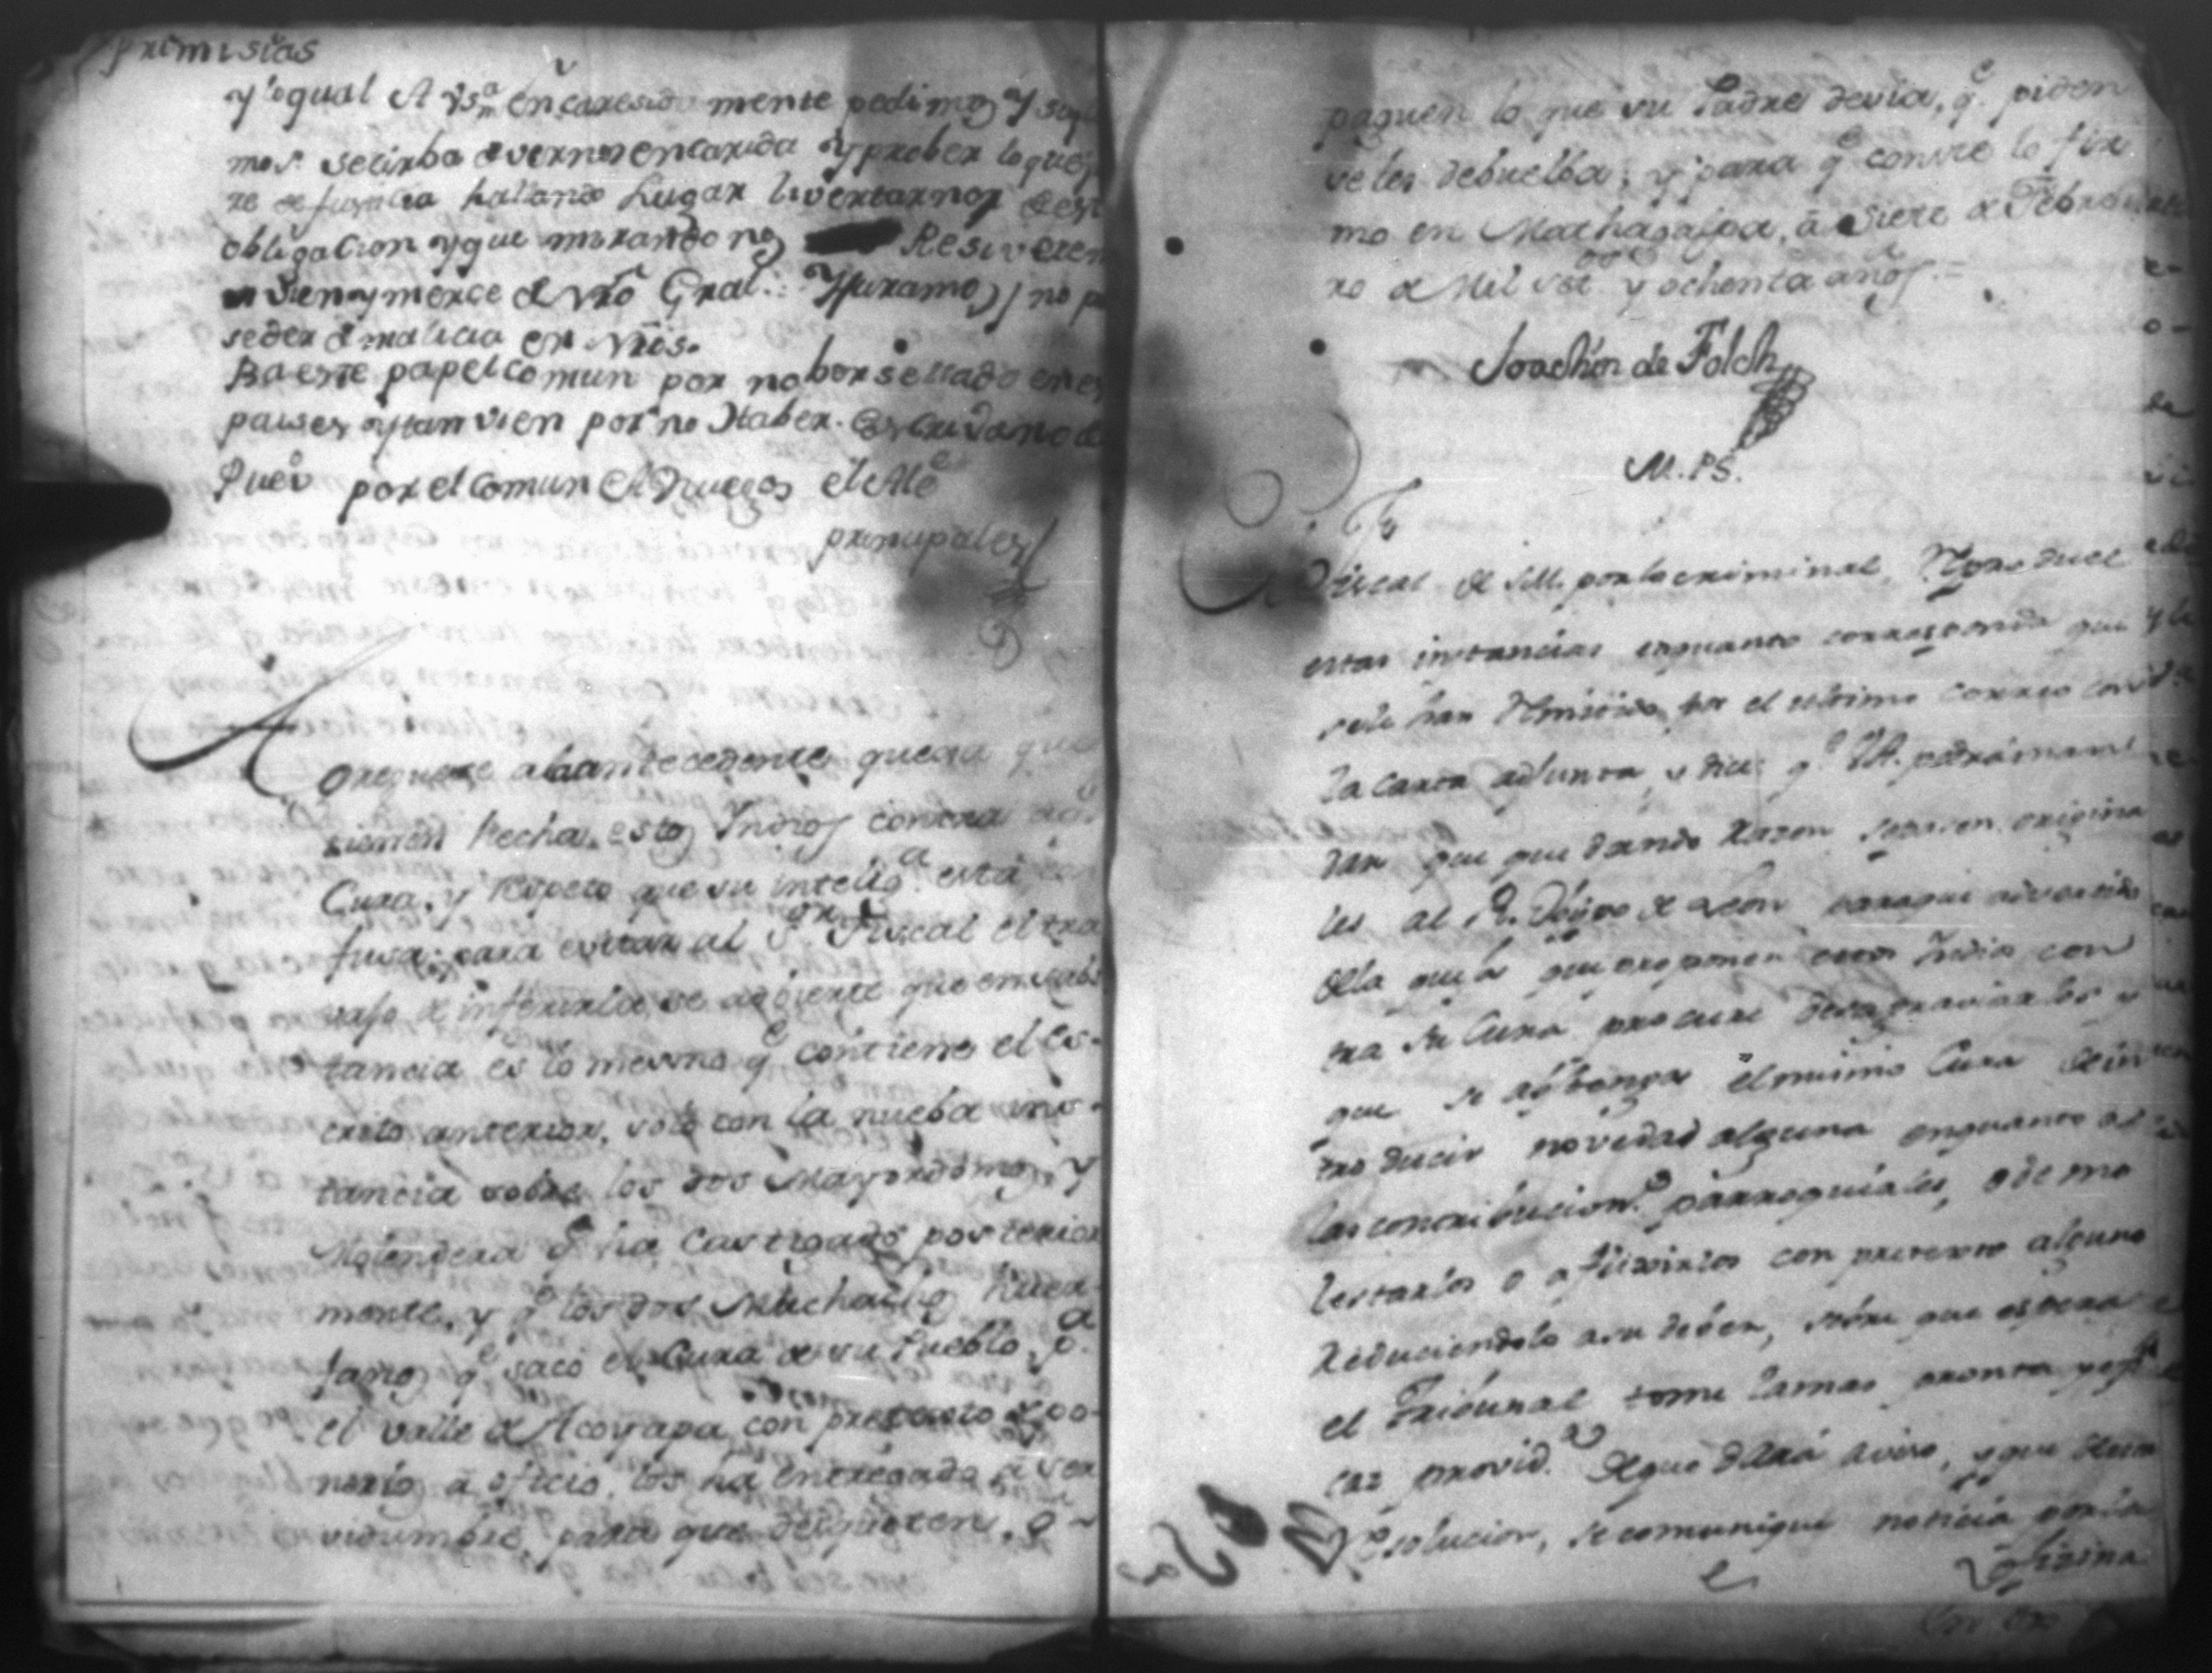 primisias
y lo qual A Vsa encaresida mente pedimos y supli
mos. se cirba de vernos en carida y prober lo que
re de justicia hallando Lugar livertarnos de est
obligacion y que mirandonos Resiviremos
vien y merce de Vro Gral. Juramos no pro
seder de malicia en nrs.
Ba este papel comun por no bor sellado en es
paises y tan vien por no Haber. Escrivano de
Pueo por el comun el Alce
principales
A oreguese ala antecedente quexa que
tienen hecha estos Indios contra
Cura, y Respeto que su inteliga. esta con
fusa; para evitar al Sor. Fiscal el tra
vajo de inferirla, se advierte que en subs
tancia es lo mesmo qe contiene el es-
crito anterior, solo con la nueba ins-
tancia sobre los dos Mayordomos, y
Molendera qe ha castigado posterior
mente, y qe los dos Muchachos Huer-
fanos qe saco el Cura de su Pueblo, pa.
el valle de Acoyapa con pretexto de po-
nerlos a oficio, los ha entregado a ser
vidumbre, para que desquiten, o
paguen lo que su Padre devia, qe. piden
se les debuelba; y para qe conste lo fir
mo en Mathagalpa, a Siete de Febre
ro de Mil setos y ochenta años. =
Joachin de Folch
M. P. S.
El Fiscal de S.M. por lo criminal, Reproduce
estas instancias enquanto corresponda que
se le han Remitido por el ultimo correo con
la carta adjunta, y dice qe. V.A. podrá man
dar que quedando Razon se pasen origina
les al R. Obispo de Leon paraque advertido
de la queja que proponen estos Indios con
tra su Cura procure desagraviarlos y
que se abstenga el mismo Cura de in
troducir novedad alguna enquanto a
las contribucions. parroquiales, o de mo
lestarlos o afligirlos con pretexto alguno
Reduciendolo a su deber, sobre que espera
el Tribunal tome la mas pronta y
caz provida. de que dará aviso, y que de esta
Resolucion, se comunique noticia por la
oficina